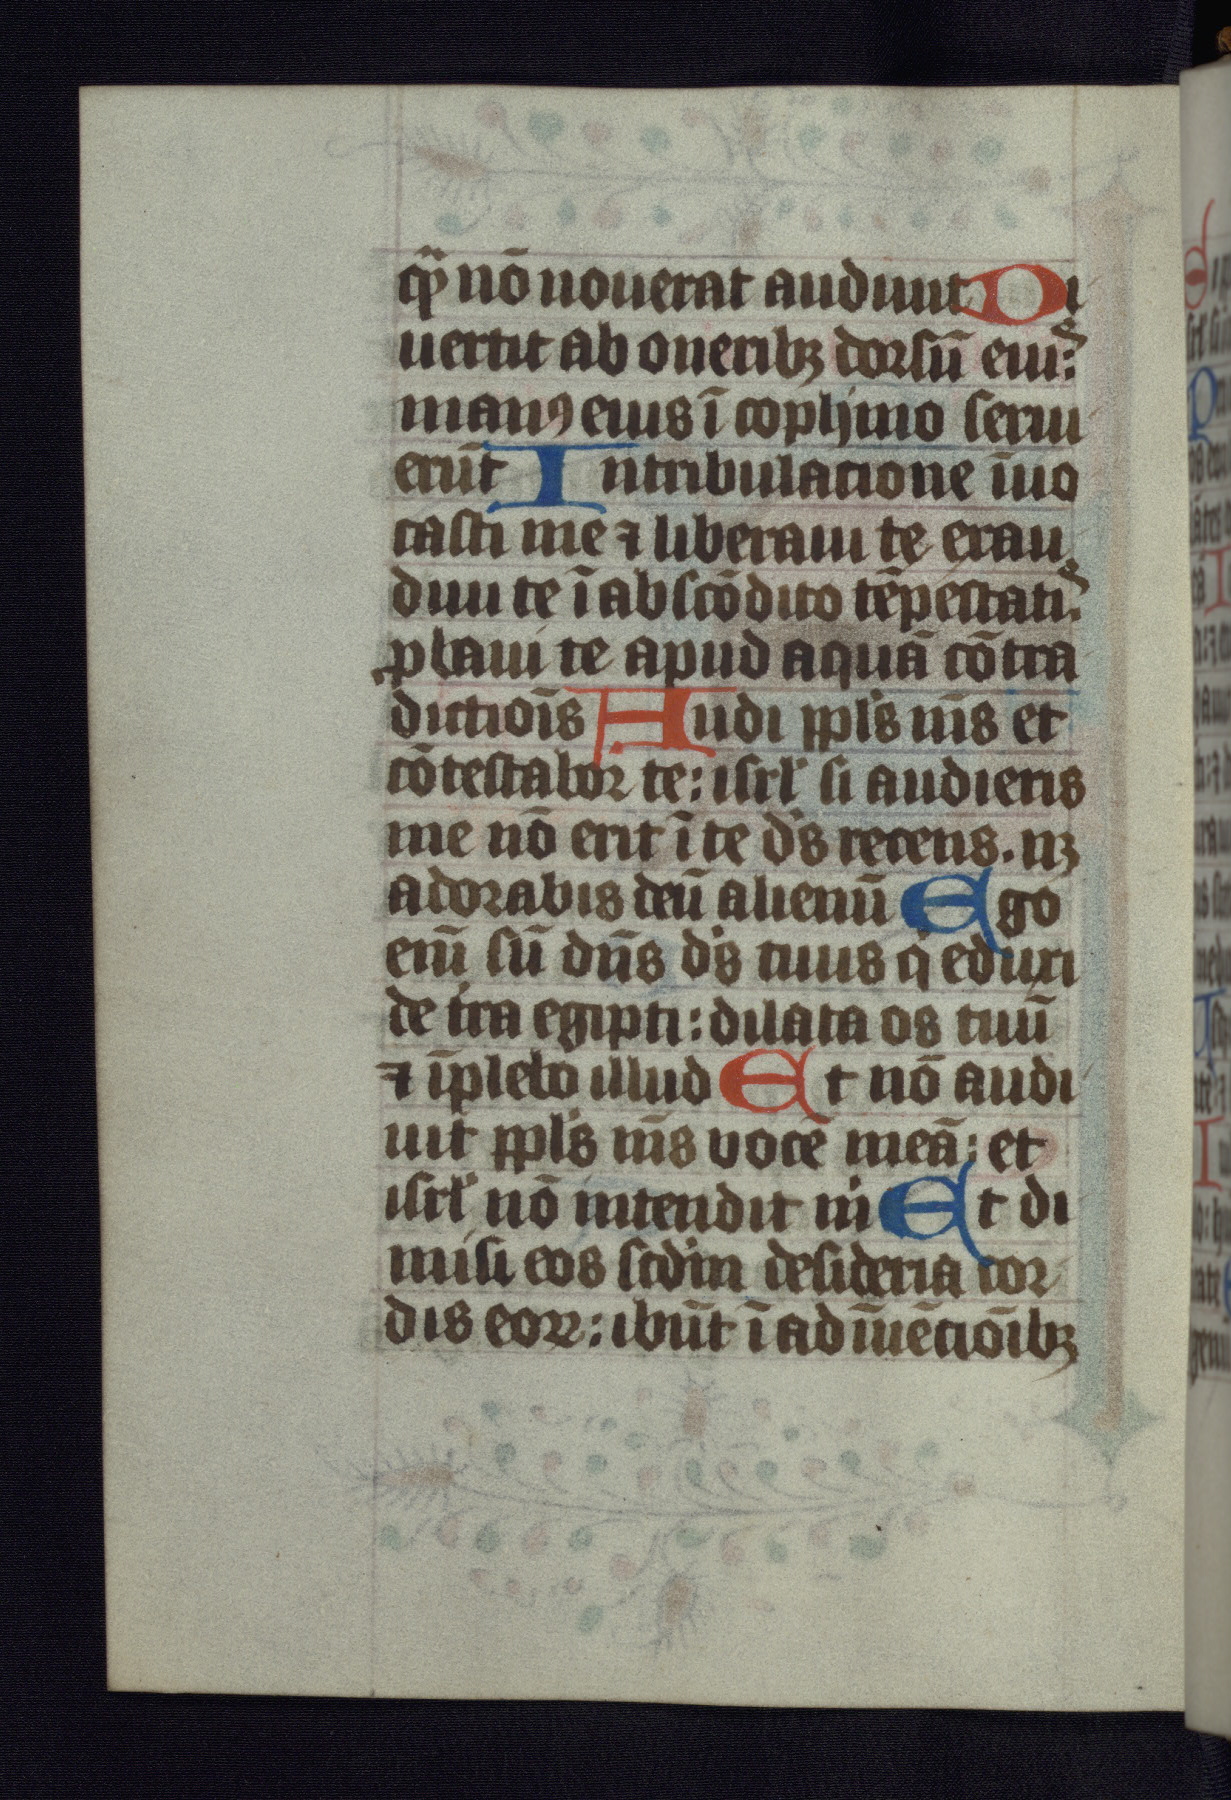 qͣ nō nouerat audiuit Di
uertit ab oneribꝫ dorsū eiuˢ:
manꝰ eius ī cophino serui
erūt In tribulatione īuo
casti me ⁊ liberaui te exau
diui te ī abscōdito tēpestatiˢ:
ꝓbaui te apud aquā cōtra
dictiōis Audi ppl's m̄s et
cōtestabor te: isrl' si audieris
me nō erit ī te d's recens. nꝫ
adorabis deū alienū Ego
em̄ sū dn̄s d's tuus qͥ eduxi
de t'ra egipti: dilata os tuū
⁊ īplebo illud Et nō audi
uit ppl's m̄s vocē meā: et
isrl' nō intendit m' Et di
misi eos scd'm desideria cor
dis eoꝝ: ibūt ī adīuētiōibꝫ